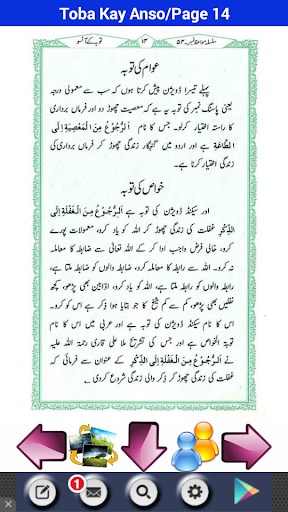 Toba Kay Anso/Page 14
سلسلہ مواعظ نمبر۔ ۵۳
۱۳
توبہ کے آنسو
عوام کی توبہ
پہلے تیسرا ڈویژن پیش کرتا ہوں کہ سب سے معمولی درجہ
یعنی پاسنگ نمبر کی توبہ یہ ہے کہ معصیت چھوڑ دو اور فرماں برداری
کا راستہ اختیار کرلو۔ جس کا نام اَلرُّجُوْعُ مِنَ الْمَعْصِیَۃِ اِلَی
الطَّاعَۃِ ہے اور اردو میں گنہگار زندگی چھوڑ کر فرماں برداری کی
زندگی اختیار کرنا ہے۔
خواص کی توبہ
اور سیکنڈ ڈویژن کی توبہ ہے اَلرُّجُوْعُ مِنَ الْغَفْلَۃِ اِلَی
الذِّکْرِ غفلت کی زندگی چھوڑ کر اللہ کو یاد کرو، معمولات پورے
کرو، خالی فرض واجب ادا کر کے اللہ تعالیٰ سے ضابطہ کا معاملہ
نہ کرو۔ اللہ سے رابطہ کا معاملہ کرو، ضابطہ والوں کو ضابطہ ملتا ہے،
رابطہ والوں کو رابطہ ملتا ہے، اللہ کو زیادہ یاد کرو، اوّابین بھی پڑھو،
نفلیں بھی پڑھو، کم سے کم شیخ کا جو بتایا ہوا ذکر ہے اس کو کرو۔
اس کا نام سیکنڈ ڈویژن کی توبہ ہے اور عربی میں اس کا نام
توبۃ الخواص ہے جس کی تشریح ملا علی قاری رحمۃ اللہ علیہ
نے اَلرُّجُوْعُ مِنَ الْغَفْلَۃِ اِلَی الذِّکْرِ کے عنوان سے فرمائی کہ
غفلت کی زندگی چھوڑ کر ذکر والی زندگی شروع کردی۔
1